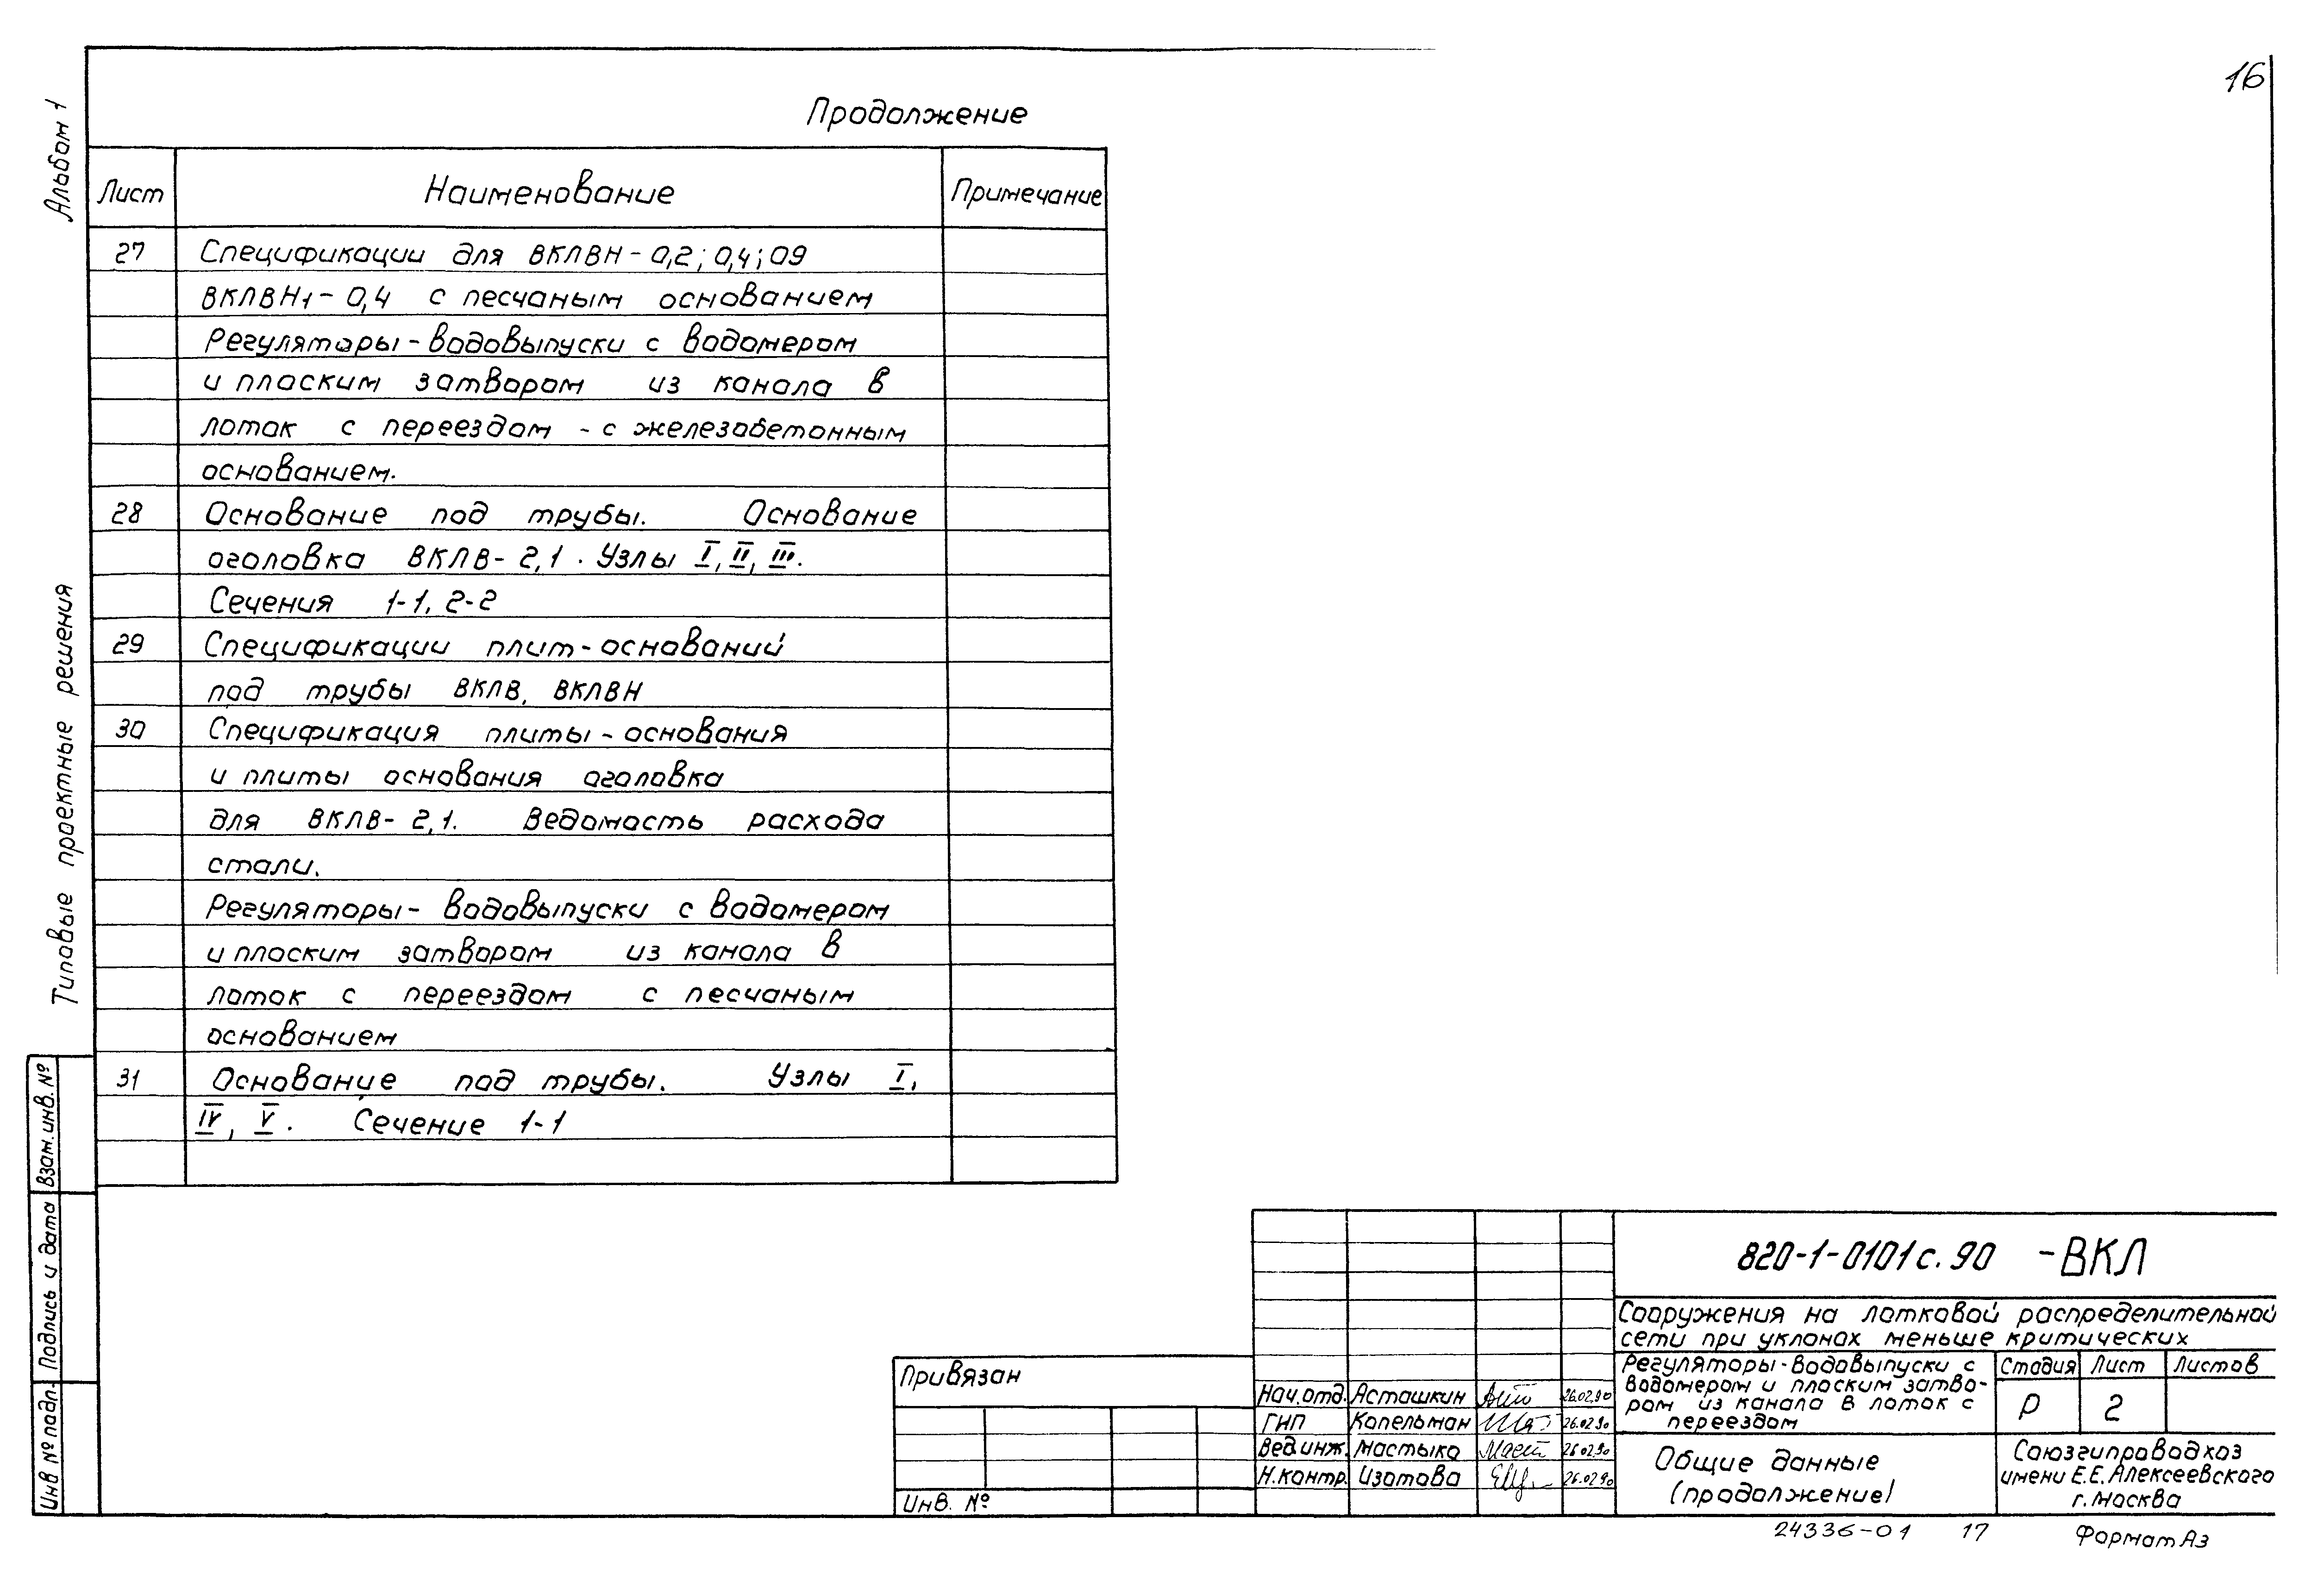 16
Альбом 1
Продолжение
Лист Наименование Примечание
27 Спецификации для ВКЛВН-0,2; 0,4; 09
ВКЛВН1-0,4 с песчаным основанием
Регуляторы-водовыпуски с водомером
и плоским затвором из канала в
лоток с переездом - с железобетонным
основанием.
28 Основание под трубы. Основание
оголовка ВКЛВ-2,1. Узлы I, II, III.
Сечения 1-1, 2-2
29 Спецификации плит-оснований
под трубы ВКЛВ, ВКЛВН
30 Спецификация плиты-основания
и плиты основания оголовка
для ВКЛВ-2,1. Ведомость расхода
стали.
Регуляторы-водовыпуски с водомером
и плоским затвором из канала в
лоток с переездом с песчаным
основанием
31 Основание под трубы. Узлы I,
IV, V. Сечение 1-1
Типовые проектные решения
Взам.инв. №
Подпись и дата
Инв № подл.
Привязан
Инв. №
Нач.отд. Асташкин 26.02.90
ГИП Копельман 26.02.90
Вед.инж. Мастыка 26.02.90
Н.контр. Изотова 26.02.90
820-1-0101с.90 -ВКЛ
Сооружения на лотковой распределительной
сети при уклонах меньше критических
Регуляторы-водовыпуски с
водомером и плоским затво-
ром из канала в лоток с
переездом
Стадия Лист Листов
Р 2
Общие данные
(продолжение)
Союзгипроводхоз
имени Е.Е.Алексеевского
г. Москва
24336-01 17 Формат А3